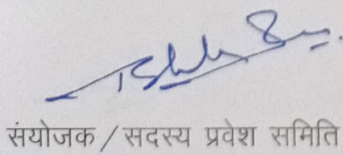 संयोजक / सदस्य प्रवेश समिति